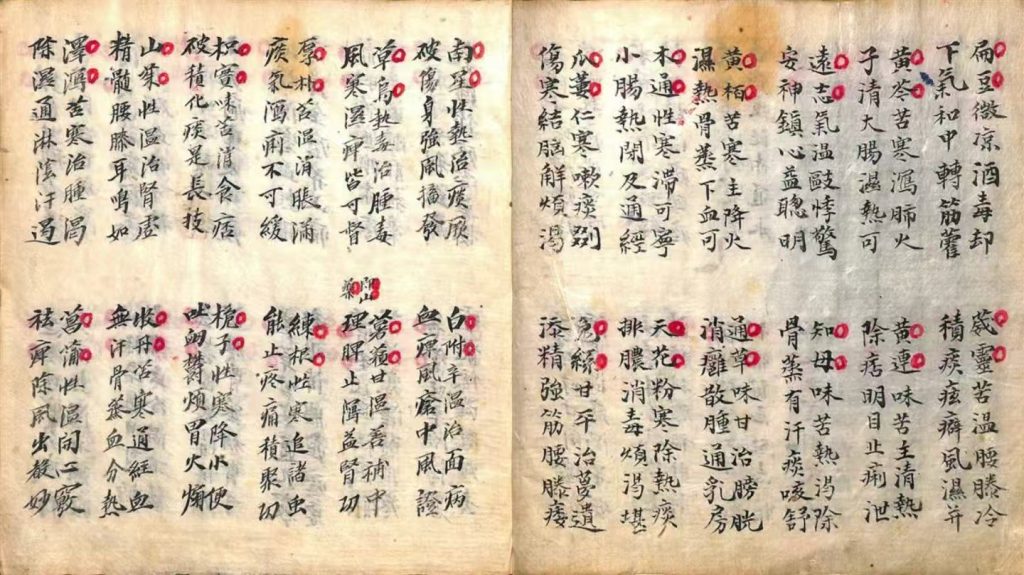 扁豆微凉酒毒却
下氣和中轉筋藿
黃芩苦寒瀉肺火
子清大腸濕熱可
遠志氣溫敺悸驚
安神鎮心益聰明
黃栢苦寒主降火
濕熱骨蒸下血可
木通性寒滯可寧
小腸熱閉及通經
瓜蔞仁寒嗽痰
傷寒結胸解煩渴
葳靈苦溫腰膝冷
積痰痃癖風濕并
黃連味苦主清熱
除痞明目止痢泄
知母味苦熱渴除
骨蒸有汗痰咳舒
通草味甘治膀胱
消癰散腫通乳房
天花粉寒除熱痰
排膿消毒煩渴堪
兔絲甘平治夢遺
添精強筋腰膝痿
南星性熱治痰厥
破傷身強風搐發
草烏熱毒治腫毒
風寒濕痺皆可督
厚朴苦溫消脹滿
痰氣瀉痢不可緩
枳實味苦消食痞
破積化痰是長技
山茱性溫治腎虛
精髓腰膝耳鳴如
澤瀉苦寒治腫渴
除濕通淋陰汗遏
白附辛溫治面病
血痺風瘡中風證
薯蕷甘溫善補中
山藥
理脾止瀉益腎功
練根性寒追諸虫
能止疼痛積聚功
梔子性寒降小便
吐衄鬱煩胃火煽
牧丹苦寒通經血
無汗骨蒸血分熱
菖蒲性溫開心竅
祛痺除風出教妙